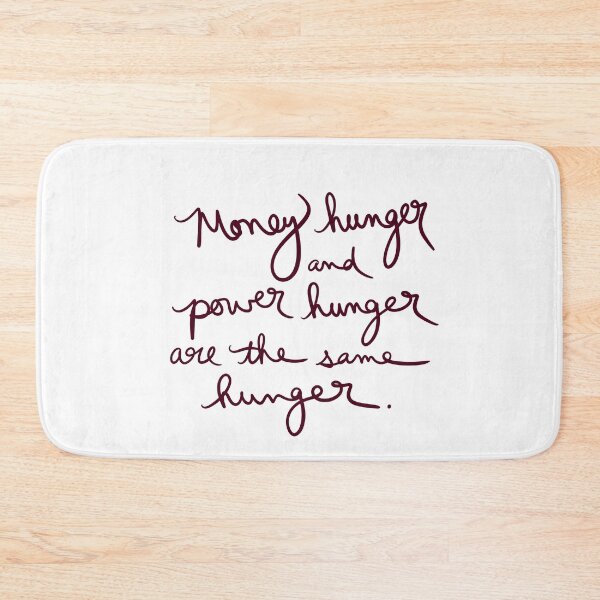 Money hunger
and
power hunger
are the same
hunger.